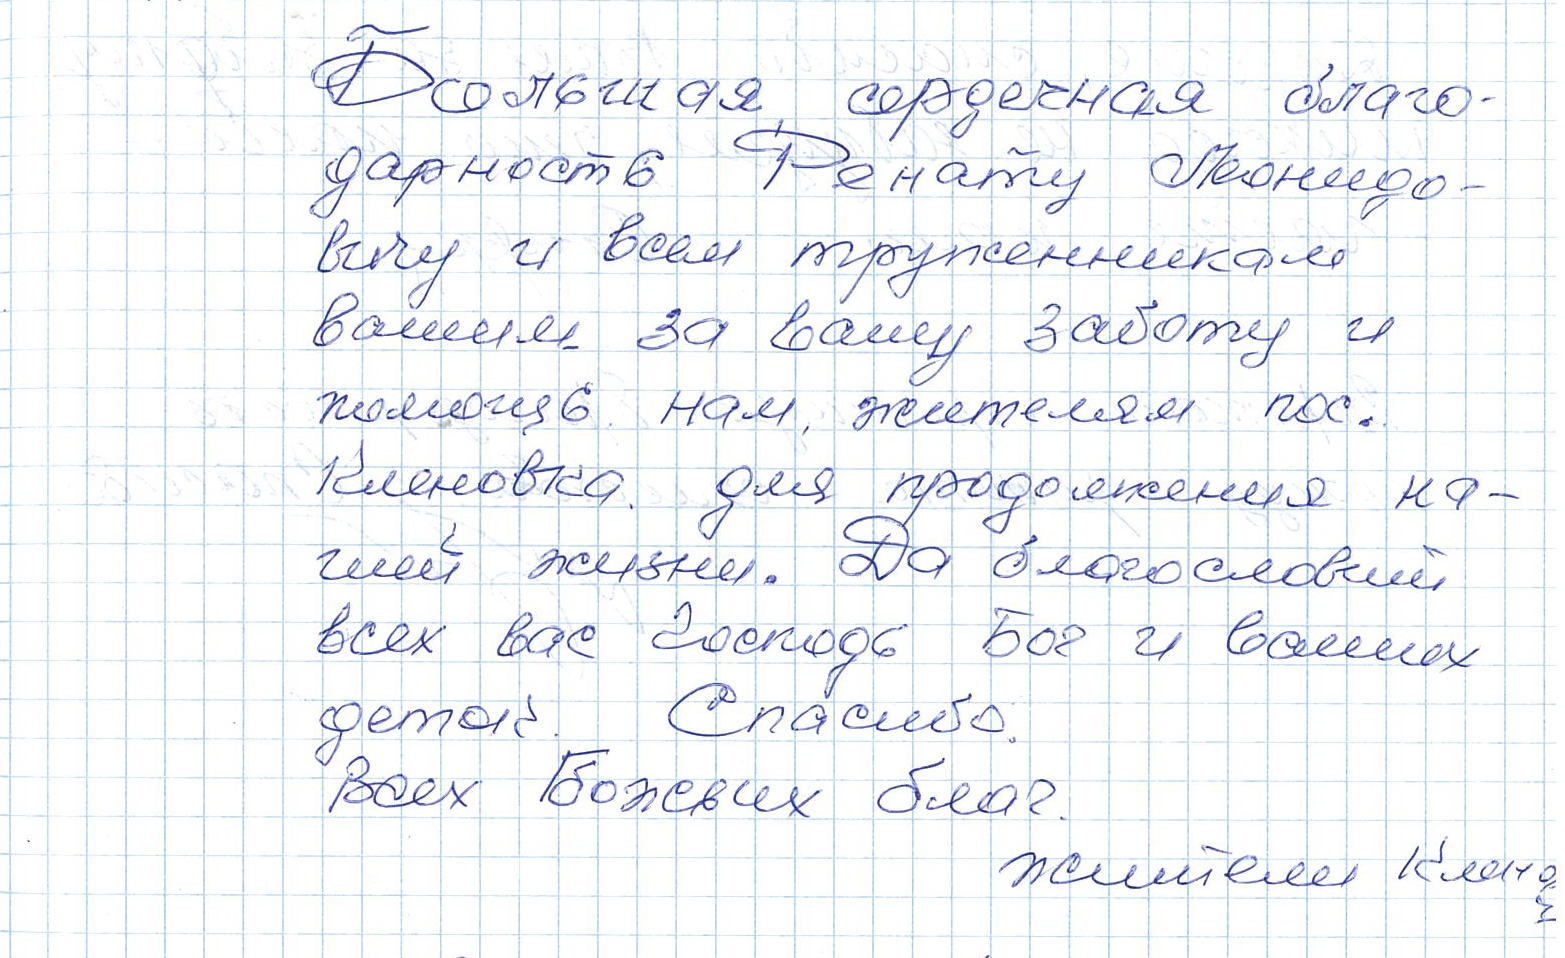 Большая сердечная благо-
дарность Ренату Леонидо-
вичу и всем труженникам
вашим за вашу заботу и
помощь нам, жителям пос.
Кленовка. для продолжения на-
шей жизни. Да благословит
всех вас Господь Бог и ваших
детей. Спасибо.
Всех Божьих благ.
жители Клено